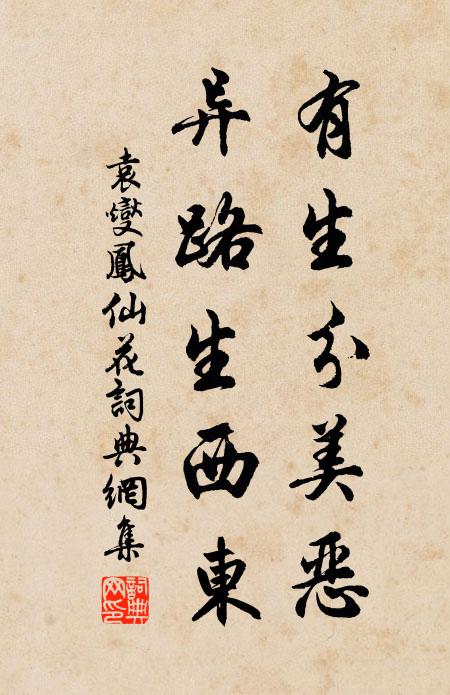 有生分美恶
异路生西東
袁燮鳳仙花詞典網集
詞典網印